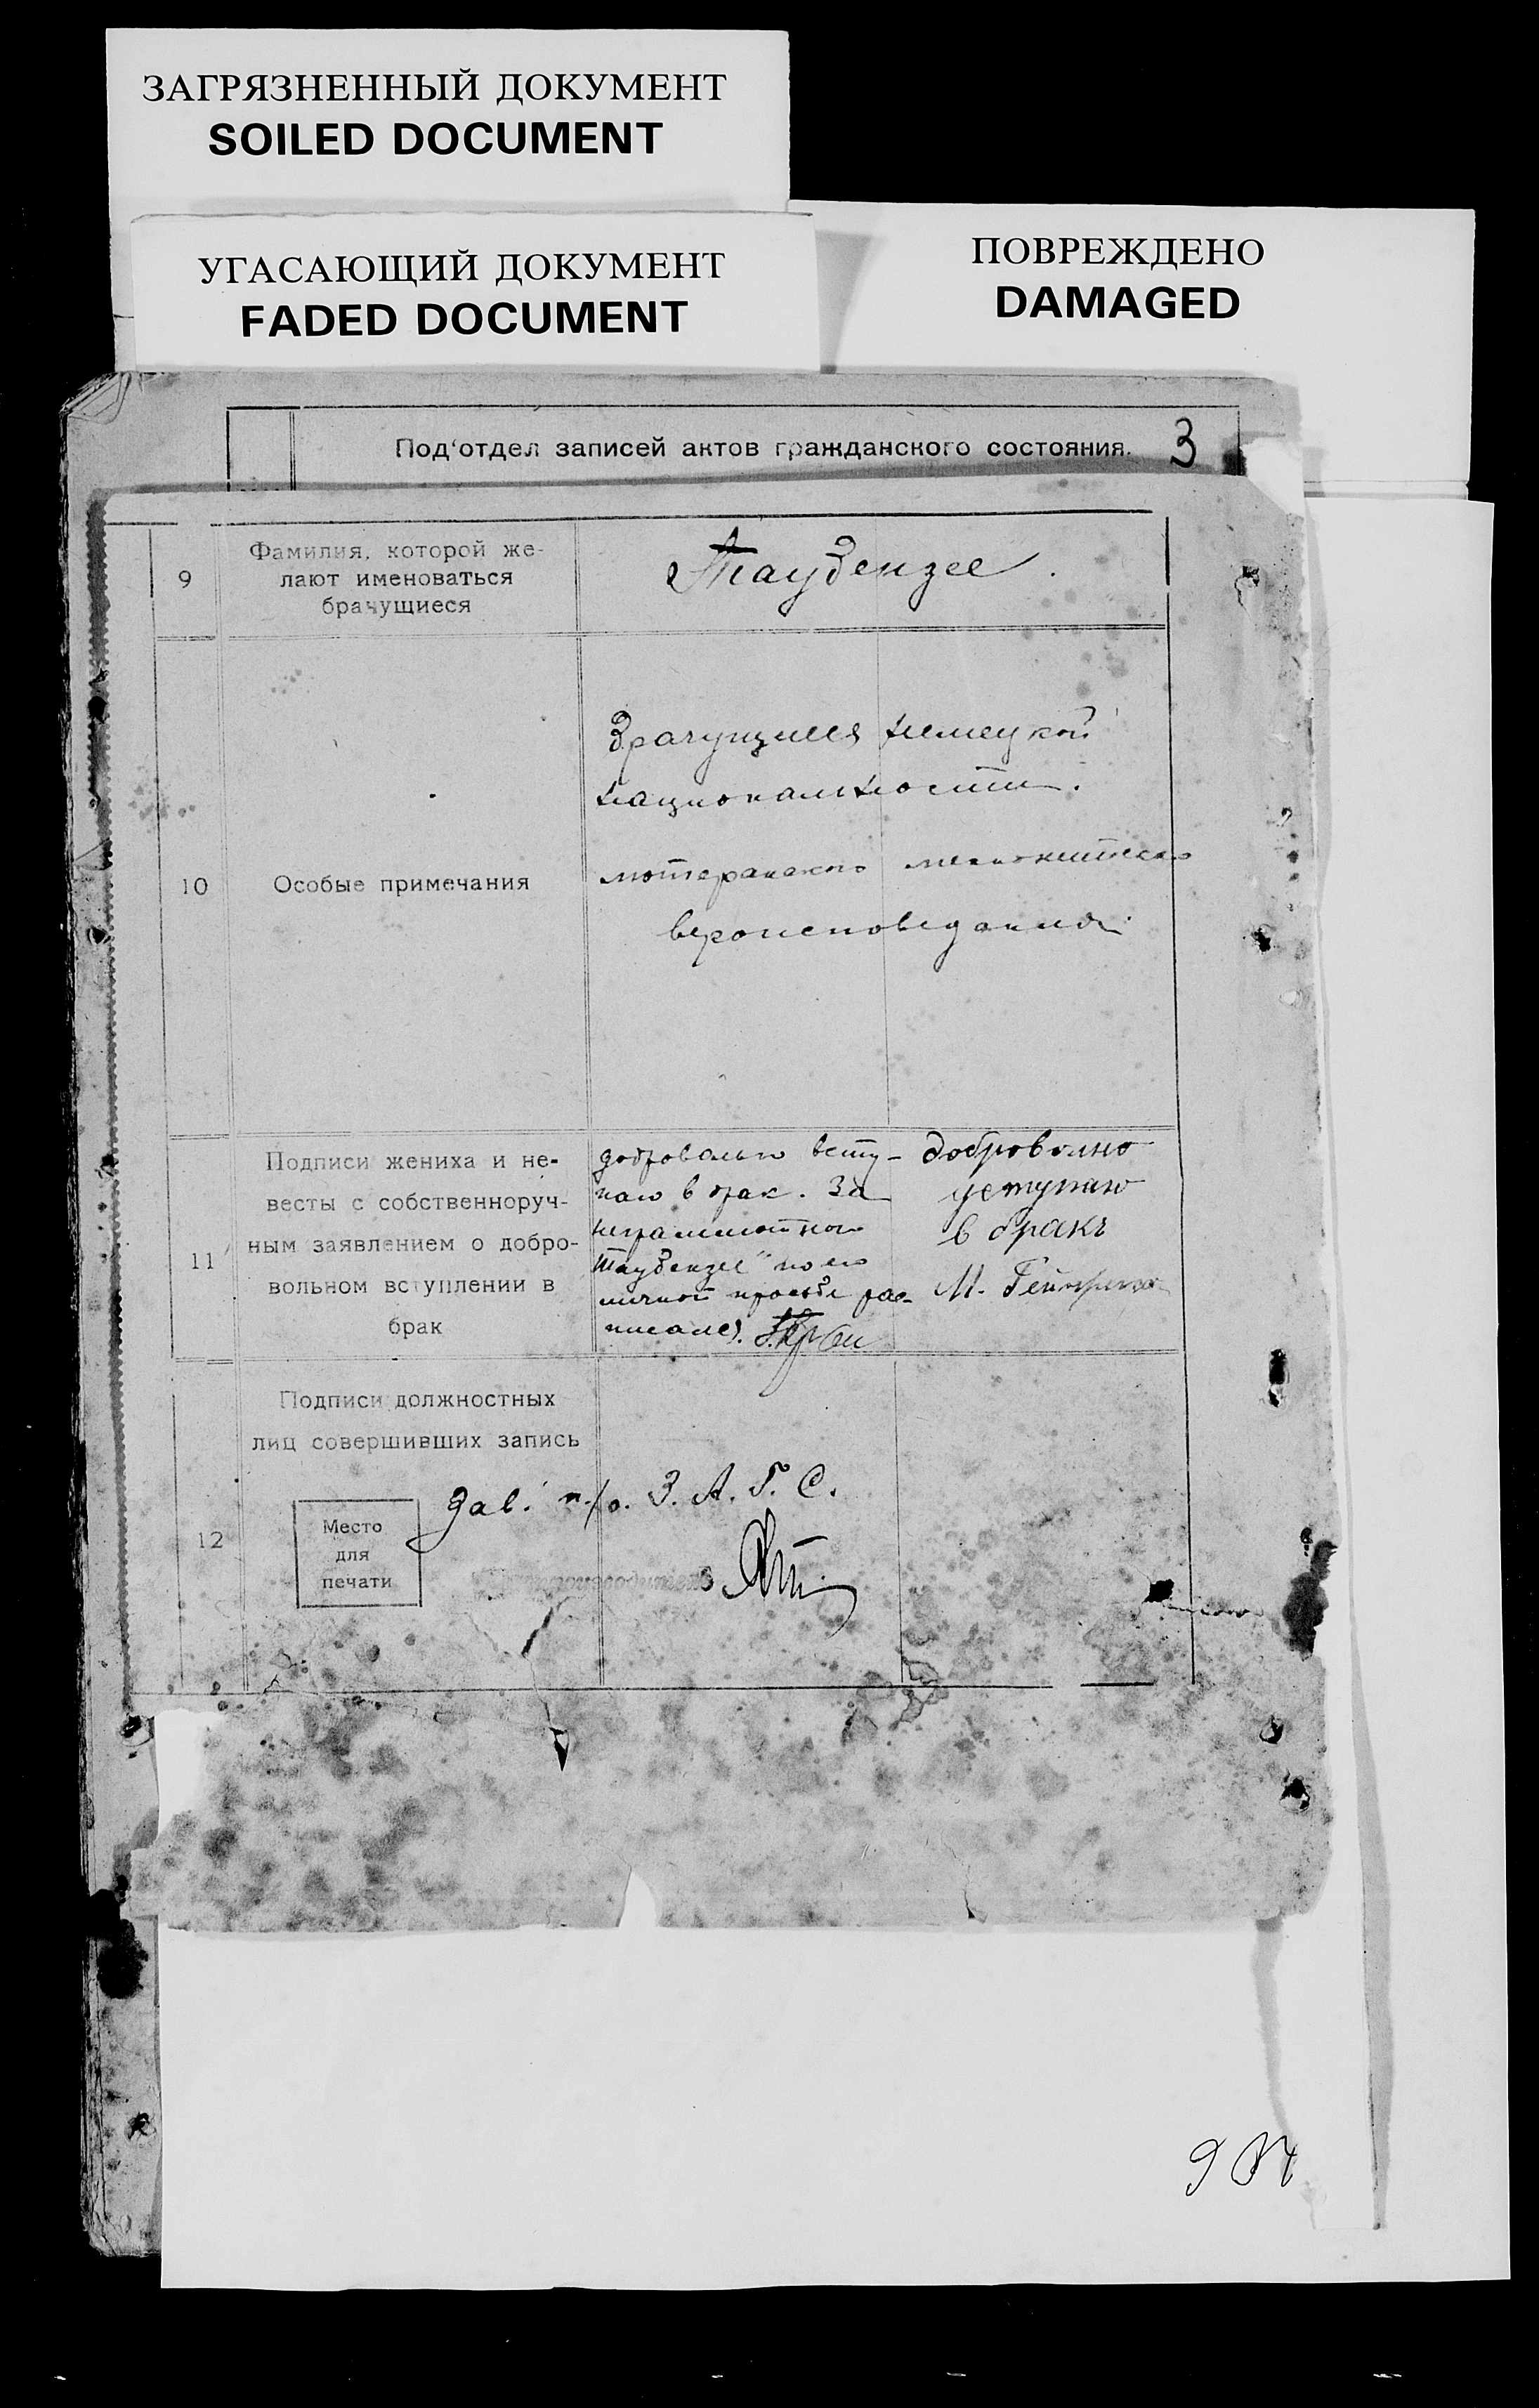 ЗАГРЯЗНЕННЫЙ ДОКУМЕНТ
SOILED DOCUMENT
УГАСАЮЩИЙ ДОКУМЕНТ
FADED DOCUMENT
ПОВРЕЖДЕНО
DAMAGED
Под'отдел записей актов гражданского состояния. 3
9
Фамилия, которой же-
лают именоваться
брачущиеся
Таубензее.
10
Особые примечания
Брачущиеся немецкой
национальности.
лютеранского менонитского
вероисповедания.
11
Подписи жениха и не-
весты с собственноруч-
ным заявлением о добро-
вольном вступлении в
брак
добровольно всту-
паю в брак. За
неграмотного
Таубензее по его
личной просьбе рас-
писался.
добровольно
уступаю
в бракъ
М.
12
Подписи должностных
лиц совершивших запись
Зав. п/о. З. А. Г. С.
Место
для
печати